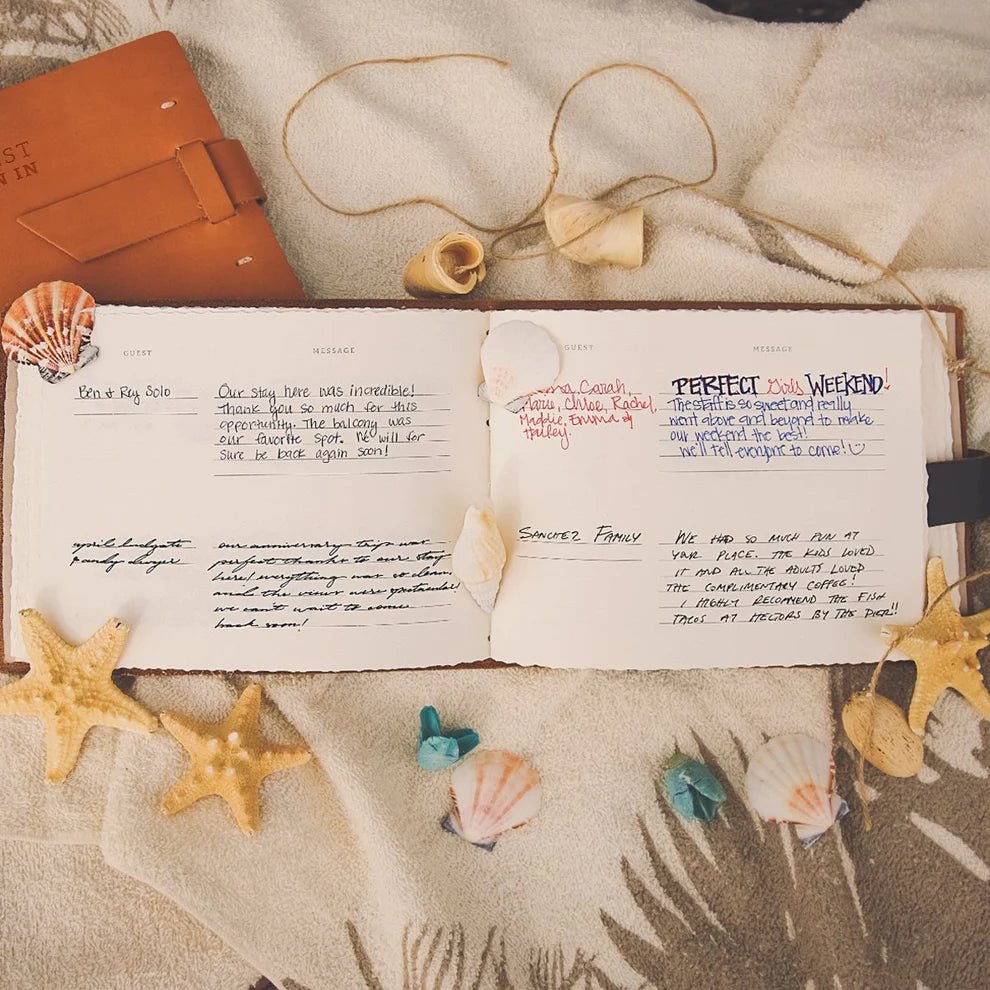 ST
N IN
GUEST
MESSAGE
Ben & Rey Solo
Our stay here was incredible!
Thank you so much for this
opportunity. The balcony was
our favorite spot. We will for
sure be back again soon!
april ludgate
& andy dwyer
our anniversary trip was
perfect thanks to our stay
here! everything was so clean
and the views were spectacular!
we can't wait to come
back soon!
GUEST
MESSAGE
Carah,
Marie, Chloe, Rachel,
Maddie, Emma &
Hailey.
PERFECT Girls WEEKEND!
The staff is so sweet and really
went above and beyond to make
our weekend the best!
we'll tell everyone to come!
SANCHEZ FAMILY
WE HAD SO MUCH FUN AT
YOUR PLACE. THE KIDS LOVED
IT AND ALL THE ADULTS LOVED
THE COMPLIMENTARY COFFEE!
I HIGHLY RECOMMEND THE FISH
TACOS AT HECTORS BY THE PIER!!